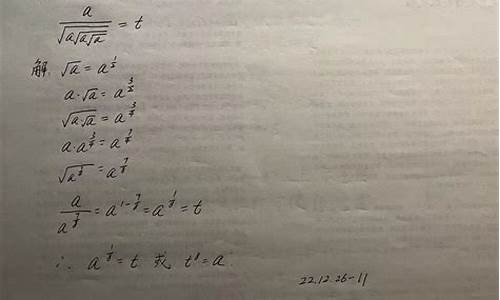 a/√(a√(a√a)) = t
解: √a = a^(1/2)
a·√a = a^(3/2)
√(a·√a) = a^(3/4)
a·a^(3/4) = a^(7/4)
√(a^(7/4)) = a^(7/8)
a/a^(7/8) = a^(1-7/8) = a^(1/8) = t
∴ a^(1/8) = t 或 t^8 = a.
22.12.26-11